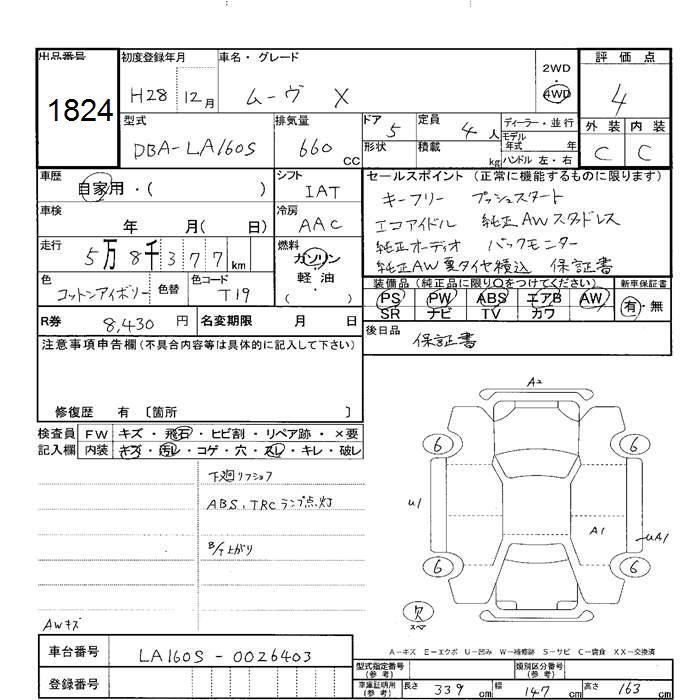 出品番号 1824
初度登録年月 H28 12月
車名・グレード ムーヴ X
2WD ・ 4WD
評価点 4
外装 内装
C C
型式 DBA-LA160S
排気量 660 CC
ドア 5
形状
定員 4人
積載 kg
ディーラー・並行
モデル年式 年
ハンドル 左・右
車歴 自家用・( )
シフト IAT
車検 年 月( 日)
冷房 AAC
走行 5万8千377km
燃料 ガソリン 軽・油 ( )
色 コットンアイボリー
色替
色コード T19
R券 8,430円
名変期限 月 日
セールスポイント (正常に機能するものに限ります)
キーフリー プッシュスタート
エコアイドル 純正AWスタッドレス
純正オーディオ バックモニター
純正AW夏タイヤ積込 保証書
装備品(純正品に限り○をつけてください)
PS PW ABS エアB AW
SR ナビ TV カワ
新車保証書
有・無
後日品 保証書
注意事項申告欄(不具合内容等は具体的に記入して下さい)
修復歴 有 〔箇所 〕
検査員記入欄
FW キズ・飛石・ヒビ割・リペア跡・×要
内装 キズ・汚レ・コゲ・穴・スレ・キレ・破レ
下廻リフショク
ABS、TRCランプ点灯
B/T上がり
AWキズ
A2
6 6
U1
A1
UA1
6 6
欠
スペア
A-キズ E-エクボ U-凹み W-補修跡 S-サビ C-腐食 XX-交換済
車台番号 LA160S-0026403
登録番号
型式指定番号(参考)
類別区分番号(参考)
車庫証明用(参考) 長さ 339cm 幅 147cm 高さ 163cm